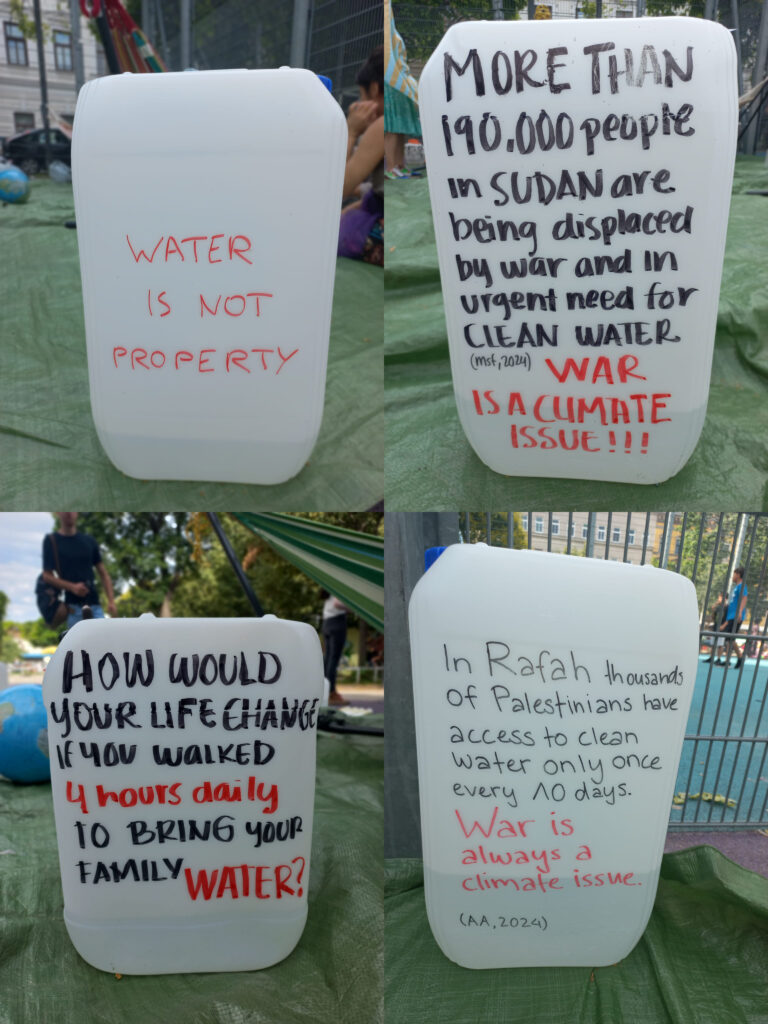 WATER
IS NOT
PROPERTY
MORE THAN
190.000 people
in SUDAN are
being displaced
by war and in
urgent need for
CLEAN WATER
(msf, 2024) WAR
IS A CLIMATE
ISSUE!!!
HOW WOULD
YOUR LIFE CHANGE
IF YOU WALKED
4 hours daily
TO BRING YOUR
FAMILY WATER?
In Rafah thousands
of Palestinians have
access to clean
water only once
every 10 days.
War is
always a
climate issue.
(AA, 2024)